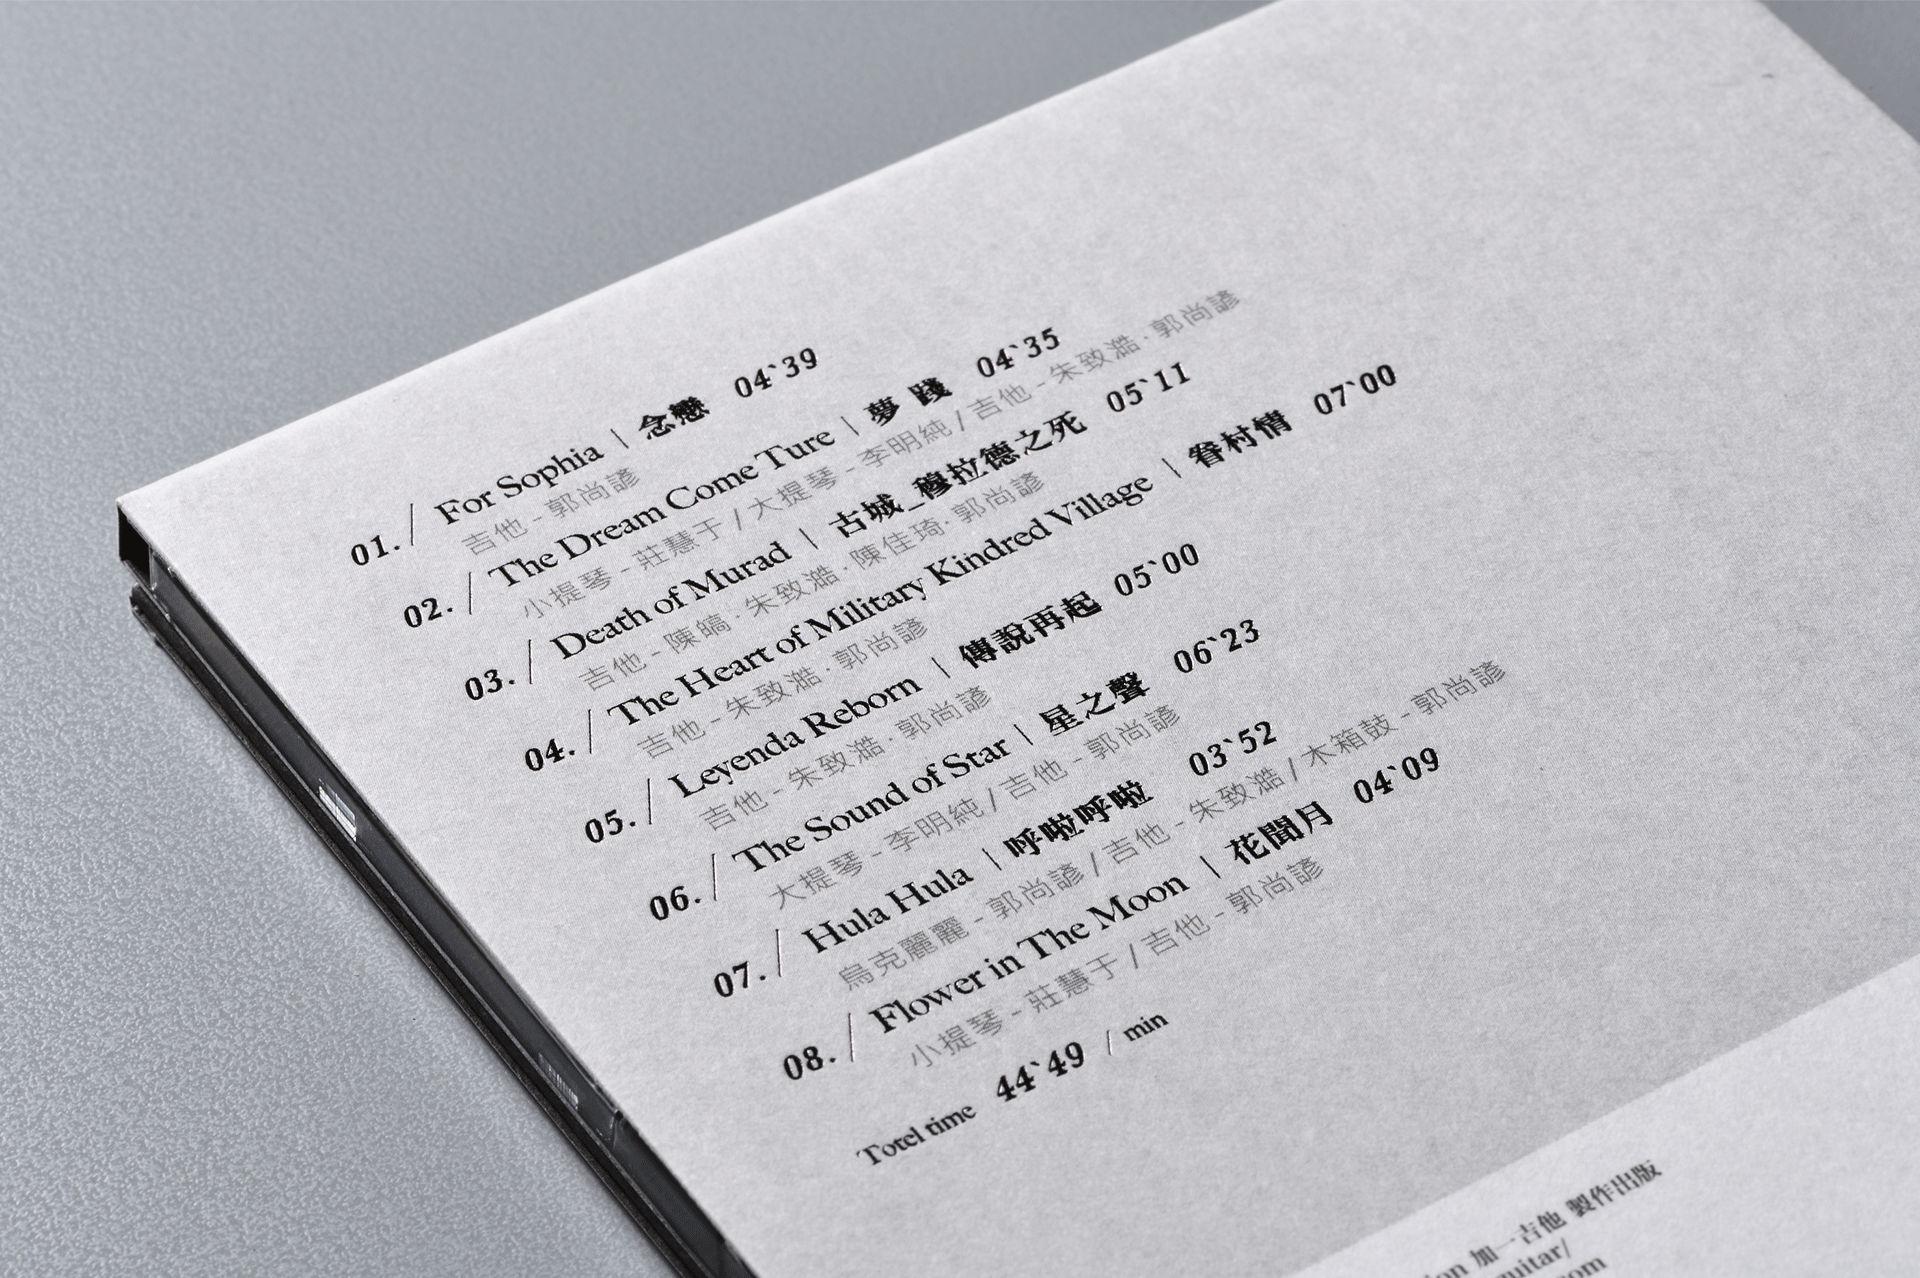 01. / For Sophia | 念戀 04`39
吉他 - 郭尚諺
02. / The Dream Come Ture | 夢 踐 04`35
小提琴 - 莊慧于 / 大提琴 - 李明純 / 吉他 - 朱致澔 · 郭尚諺
03. / Death of Murad | 古城_穆拉德之死 05`11
吉他 - 陳皜 · 朱致澔 · 陳佳琦 · 郭尚諺
04. / The Heart of Military Kindred Village | 眷村情 07`00
吉他 - 朱致澔 · 郭尚諺
05. / Leyenda Reborn | 傳說再起 05`00
吉他 - 朱致澔 · 郭尚諺
06. / The Sound of Star | 星之聲 06`23
大提琴 - 李明純 / 吉他 - 郭尚諺
07. / Hula Hula | 呼啦呼啦 03`52
烏克麗麗 - 郭尚諺 / 吉他 - 朱致澔 / 木箱鼓 - 郭尚諺
08. / Flower in The Moon | 花聞月 04`09
小提琴 - 莊慧于 / 吉他 - 郭尚諺
Totel time 44`49 / min
加一吉他 製作出版